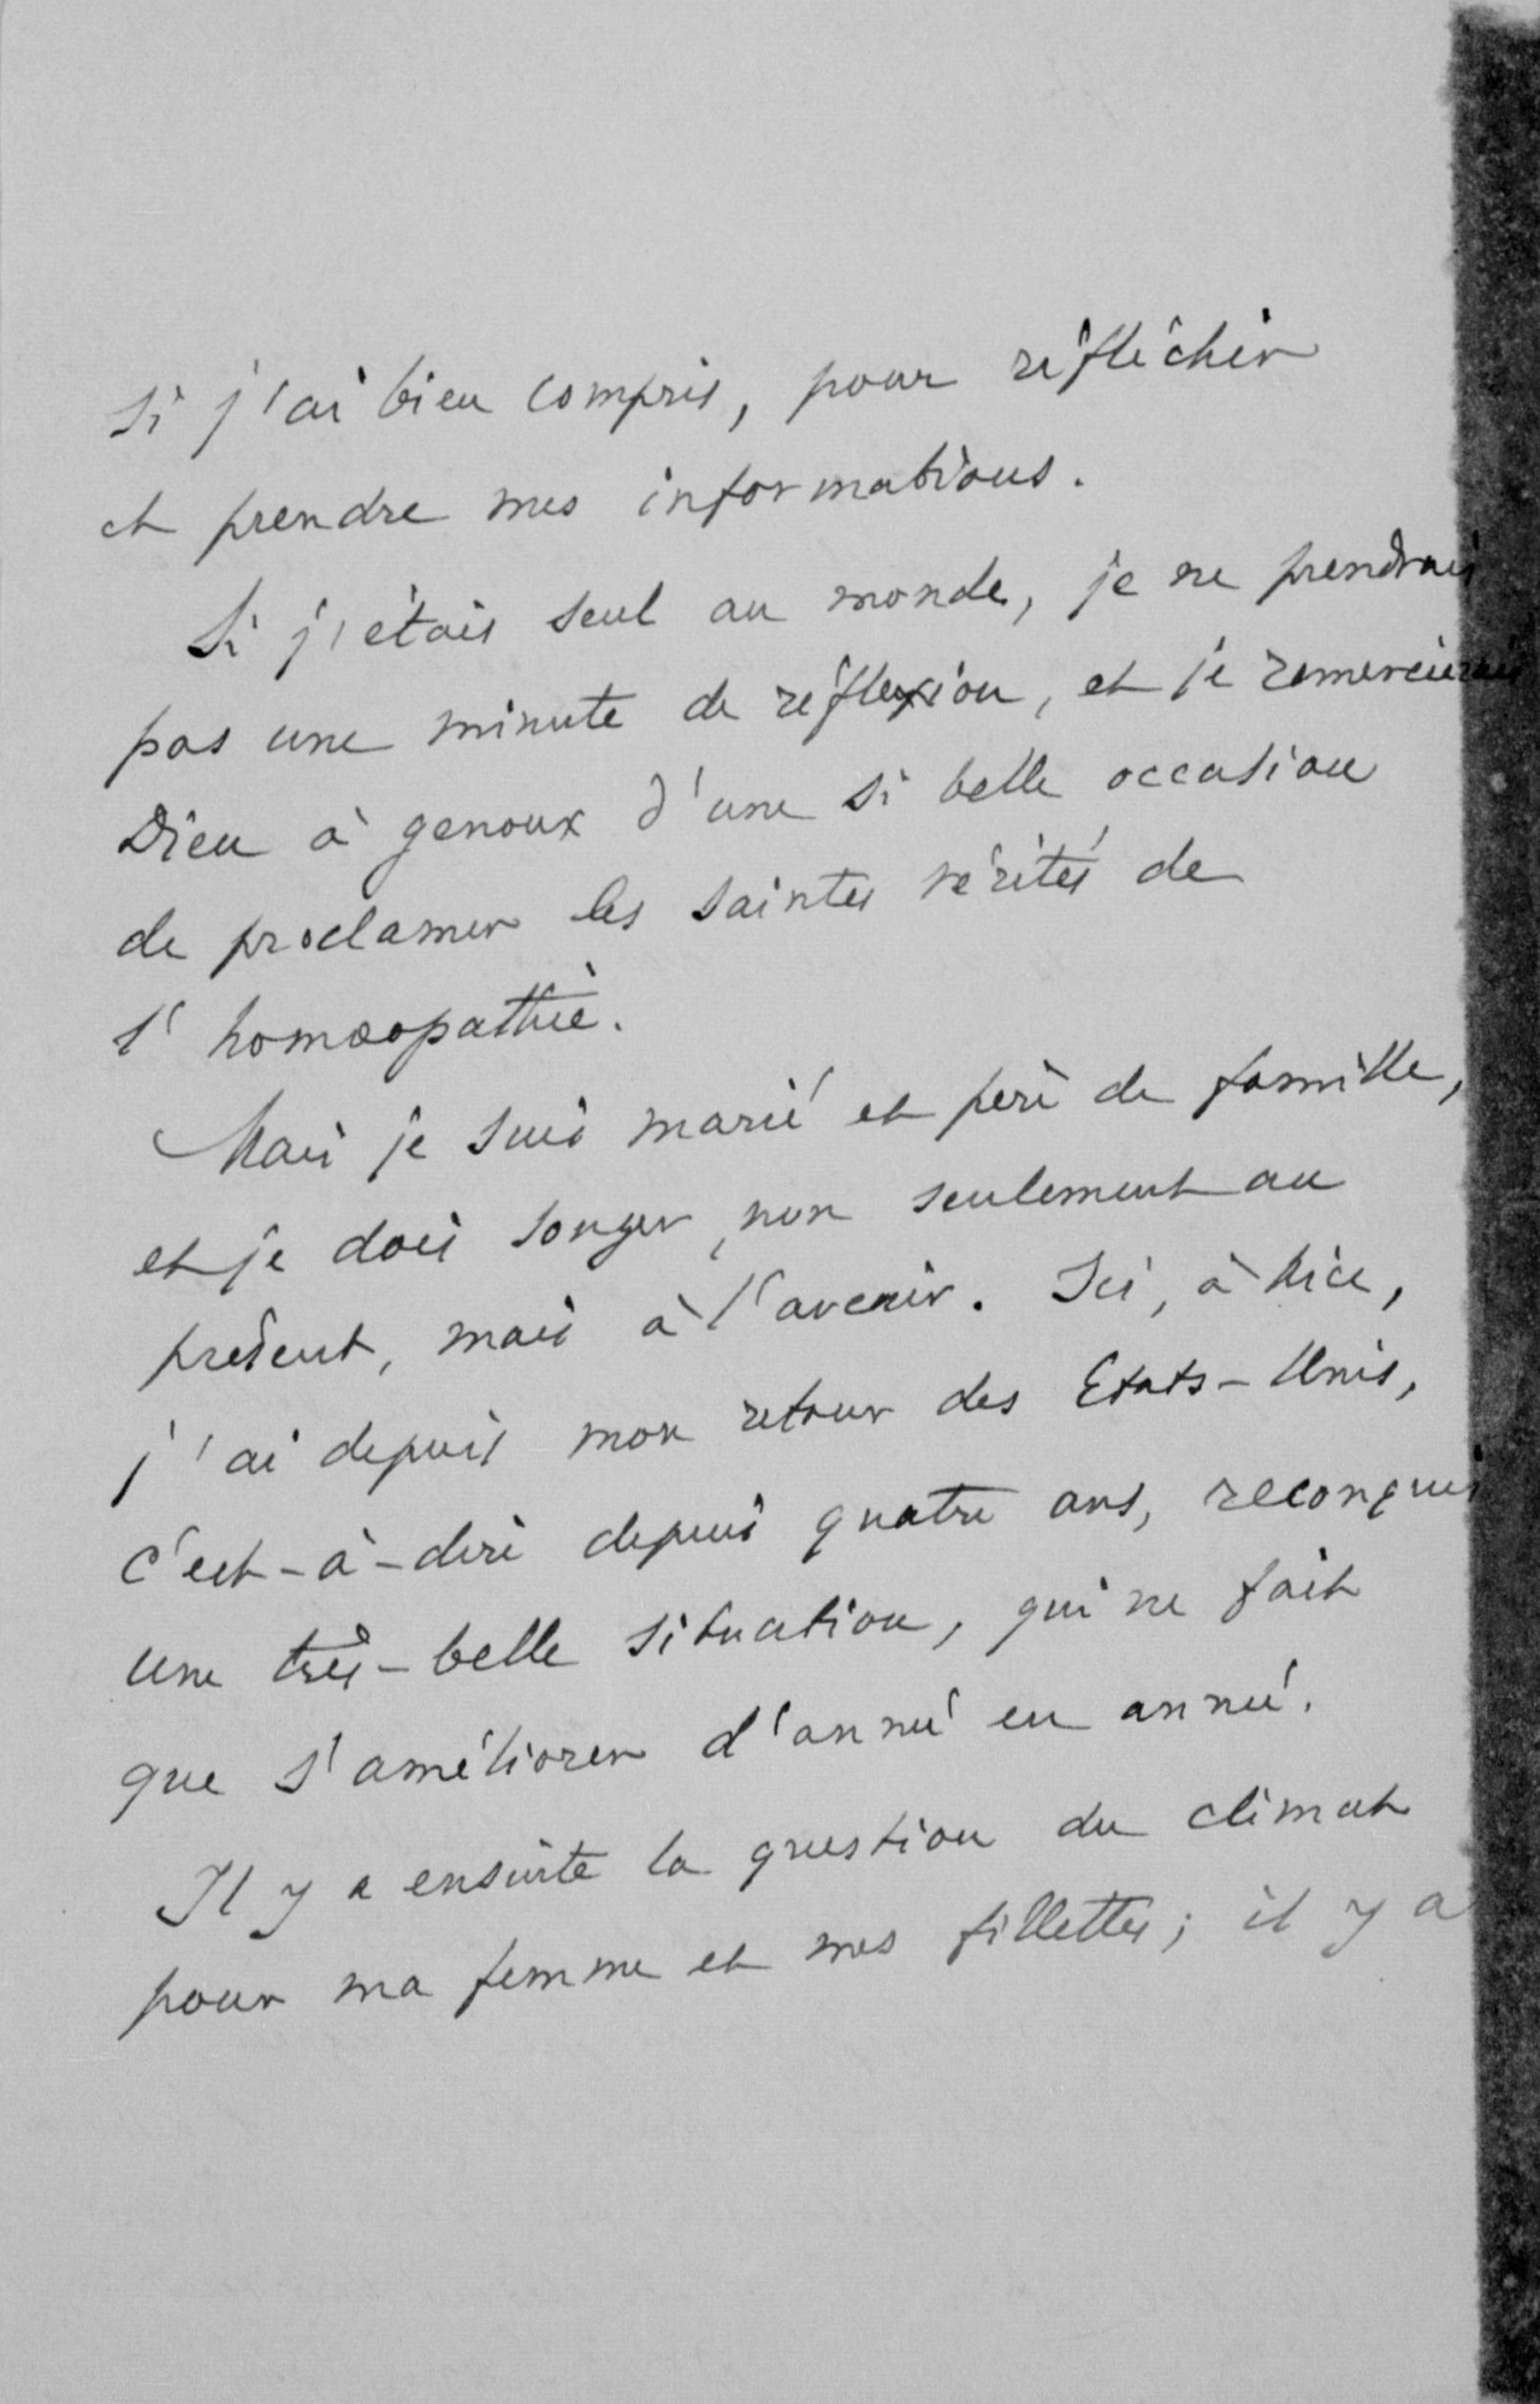 si j'ai bien compris, pour réfléchir
et prendre mes informations.
Si j'étais seul au monde, je ne prendrais
pas une minute de réflexion, et je remercierais
Dieu à genoux d'une si belle occasion
de proclamer les saintes vérités de
l'homœopathie.
Mais je suis marié et père de famille,
et je dois songer, non seulement au
présent, mais à l'avenir. Ici, à Nice,
j'ai depuis mon retour des Etats-Unis,
c'est-à-dire depuis quatre ans, reconquis
une très-belle situation, qui ne fait
que s'améliorer d'année en année.
Il y a ensuite la question du climat
pour ma femme et mes fillettes ; il y a